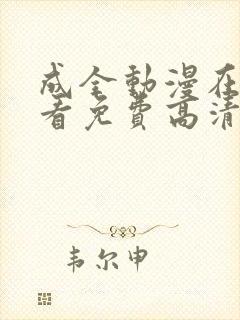 成全動漫在
看免費高清
韦尔申